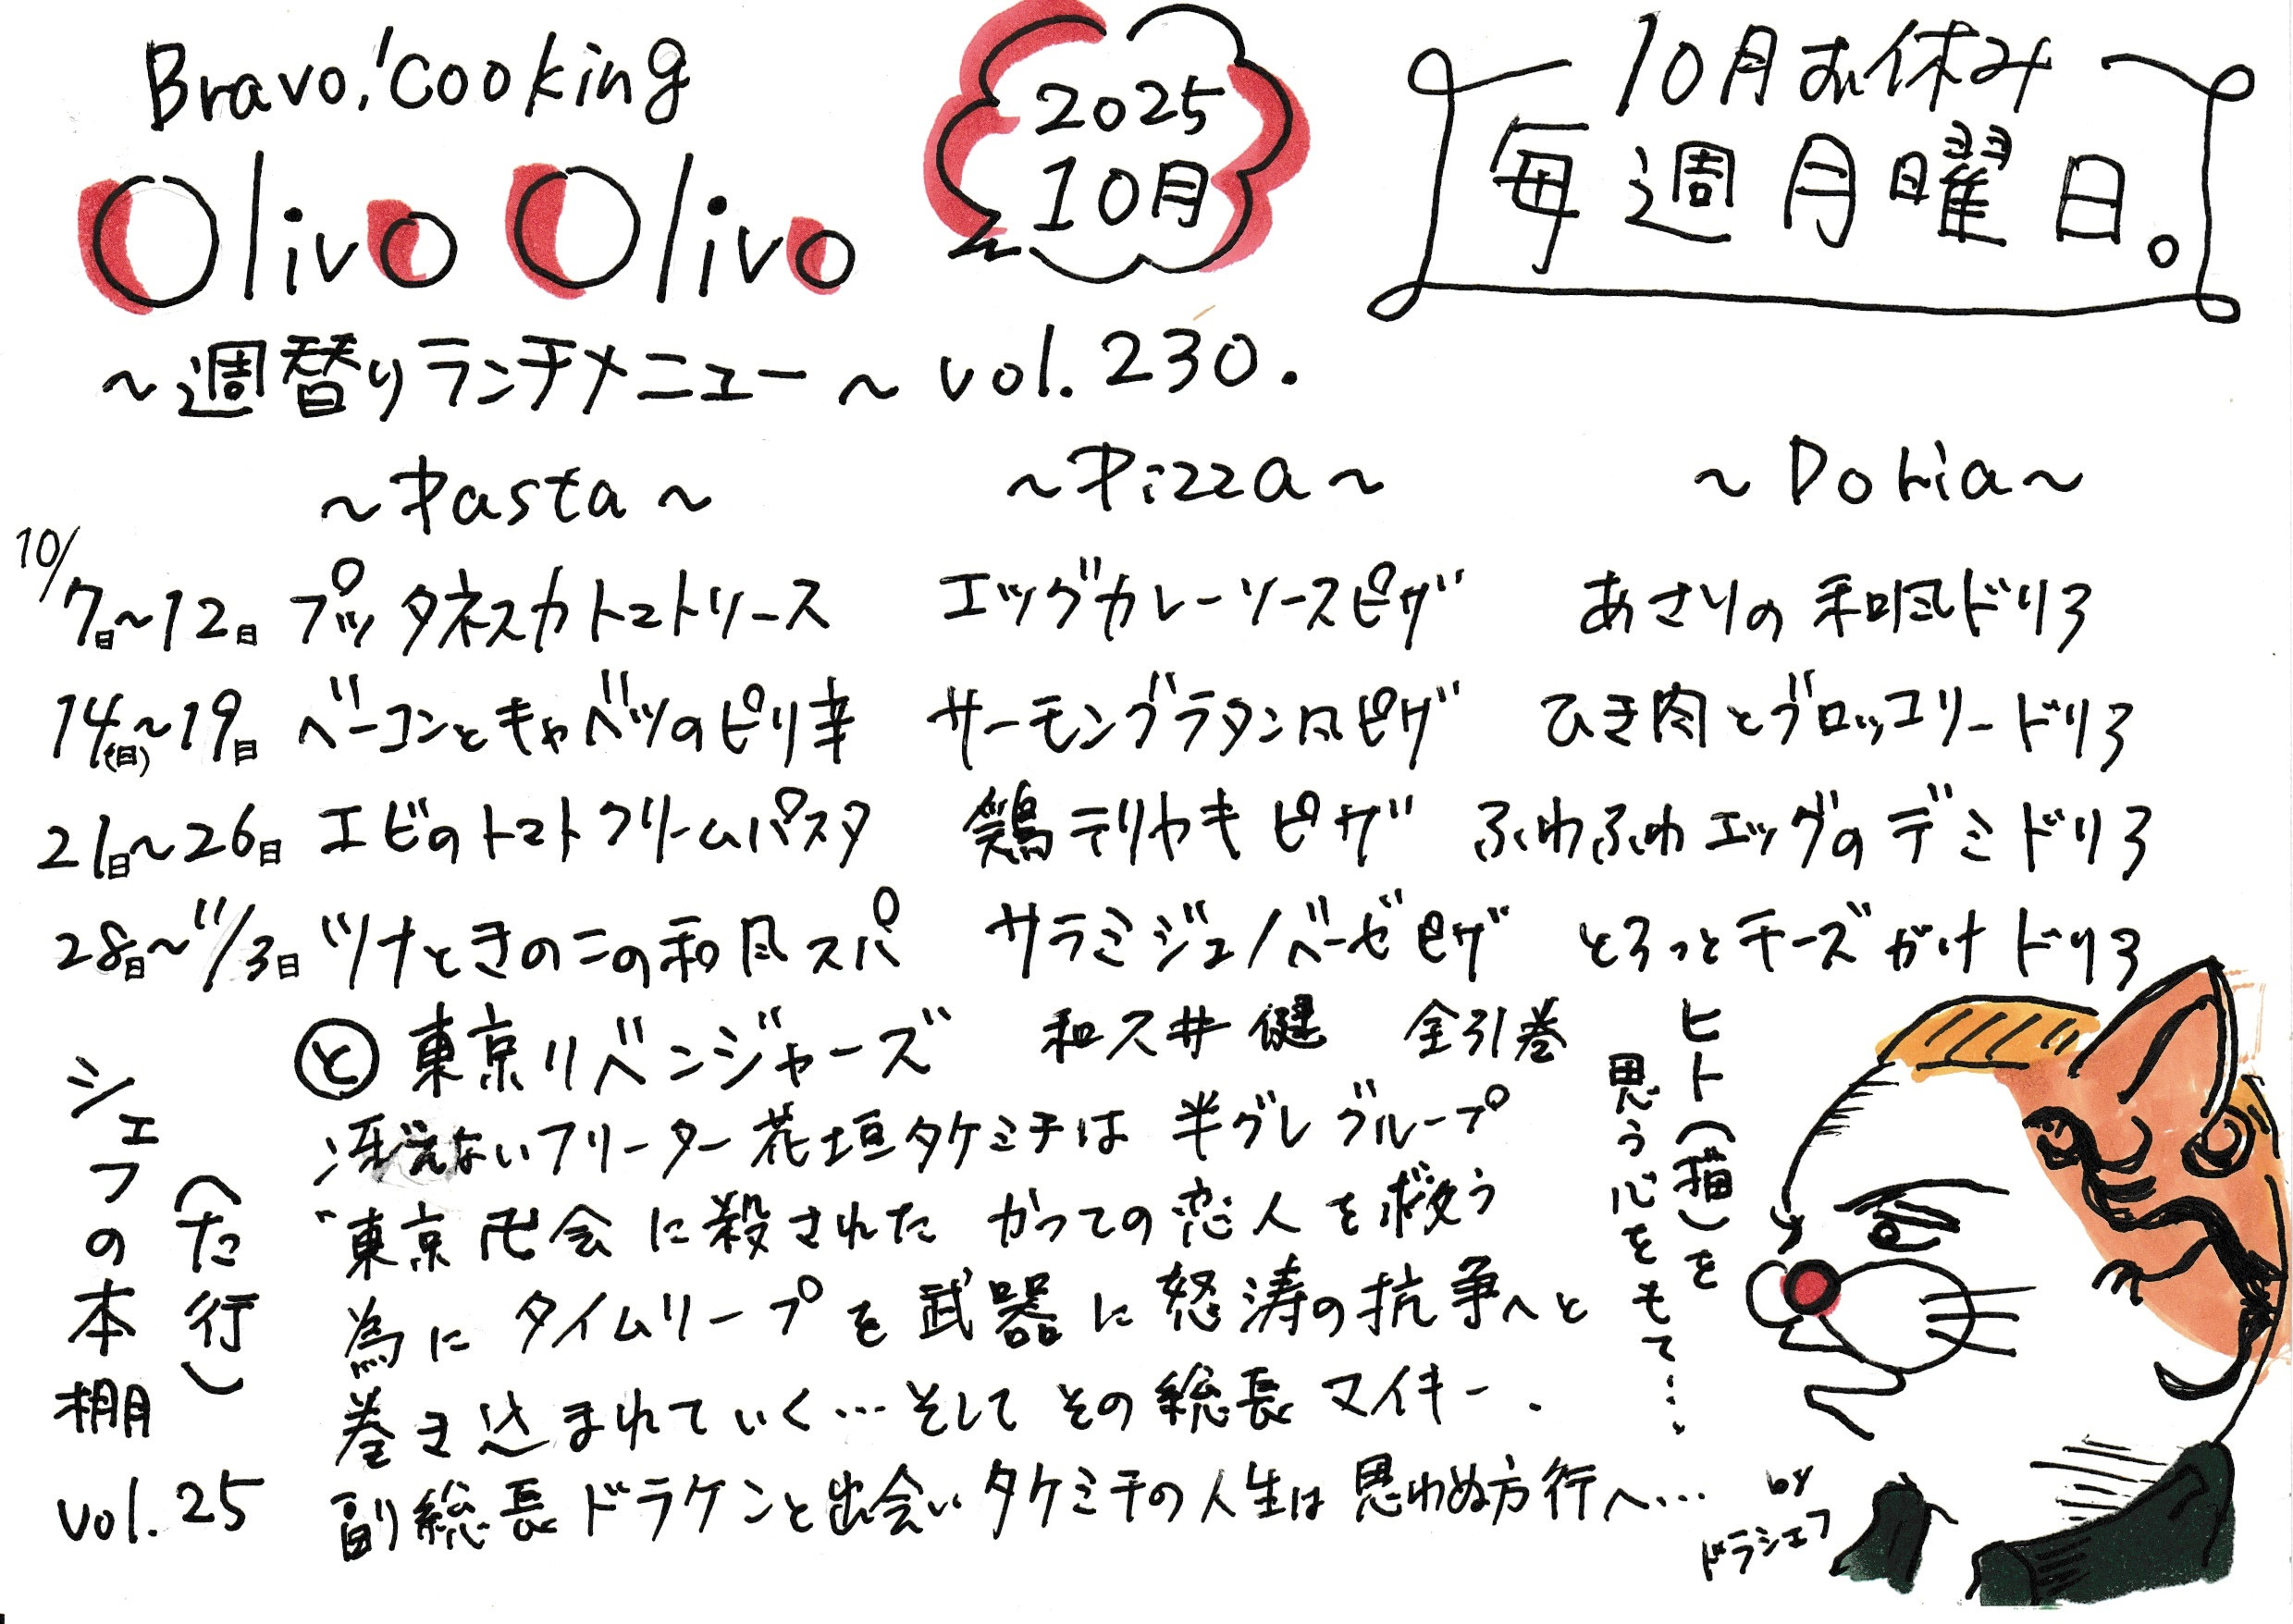 Bravo!cooking
Olivo Olivo
2025
10月
10月お休み
毎週月曜日。
～週替りランチメニュー～ vol.230.
～Pasta～ ～Pizza～ ～Doria～
10/7日～12日 プッタネスカトマトソース エッグカレーソースピザ あさりの和風ドリア
14(日)～19日 ベーコンとキャベツのピリ辛 サーモングラタン風ピザ ひき肉とブロッコリードリア
21日～26日 エビのトマトクリームパスタ 鶏テリヤキピザ ふわふわエッグのデミドリア
28日～11/3日 ツナときのこの和風スパ サラミジェノベーゼピザ とろっとチーズがけドリア
シェフの本棚
(た行)
vol.25
と 東京リベンジャーズ 和久井健 全31巻
冴えないフリーター花垣タケミチは半グレグループ
"東京卍会に殺されたかつての恋人を救う
為にタイムリープを武器に怒涛の抗争へと
巻き込まれていく…そしてその総長マイキー.
副総長ドラケンと出会いタケミチの人生は思わぬ方行へ…
ヒト(猫)を
思う心をもて….
by
ドラシェフ